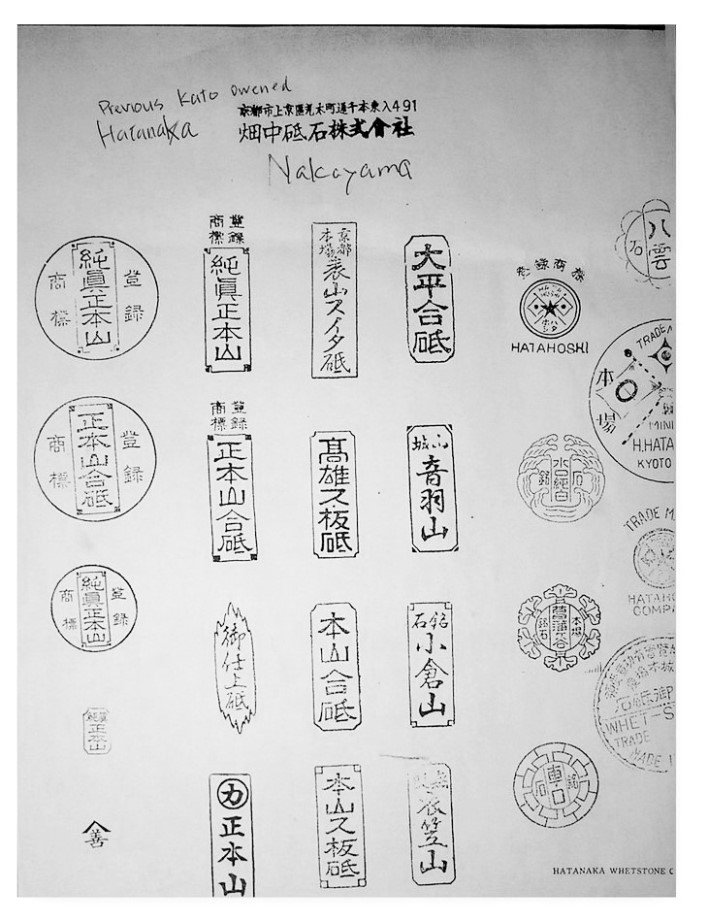 Previous Kato owened
Hatanaka
京都市上京區荒木町通千本東入491
畑中砥石株式會社
Nakayama
登錄
商標
純眞正本山
登錄
商標
純眞正本山
京都
本場
表山スイタ砥
大平合砥
登錄商標
HATAHOSHI
八雲
石
登錄
商標
正本山合砥
登錄
商標
正本山合砥
高雄又板砥
山城
音羽山
水口純白
銘石
TRADE
本場
MINI
H.HATA
KYOTO
登錄
商標
純眞正本山
御仕上砥
本山合砥
銘石
小倉山
菖蒲谷
本場
銘石
TRADE M
HATAHO
COMPA
純眞
正本山
善
カ
正本山
本山又板砥
衣笠山
銘石
WHET-S
TRADE
MADE
HATANAKA WHETSTONE C